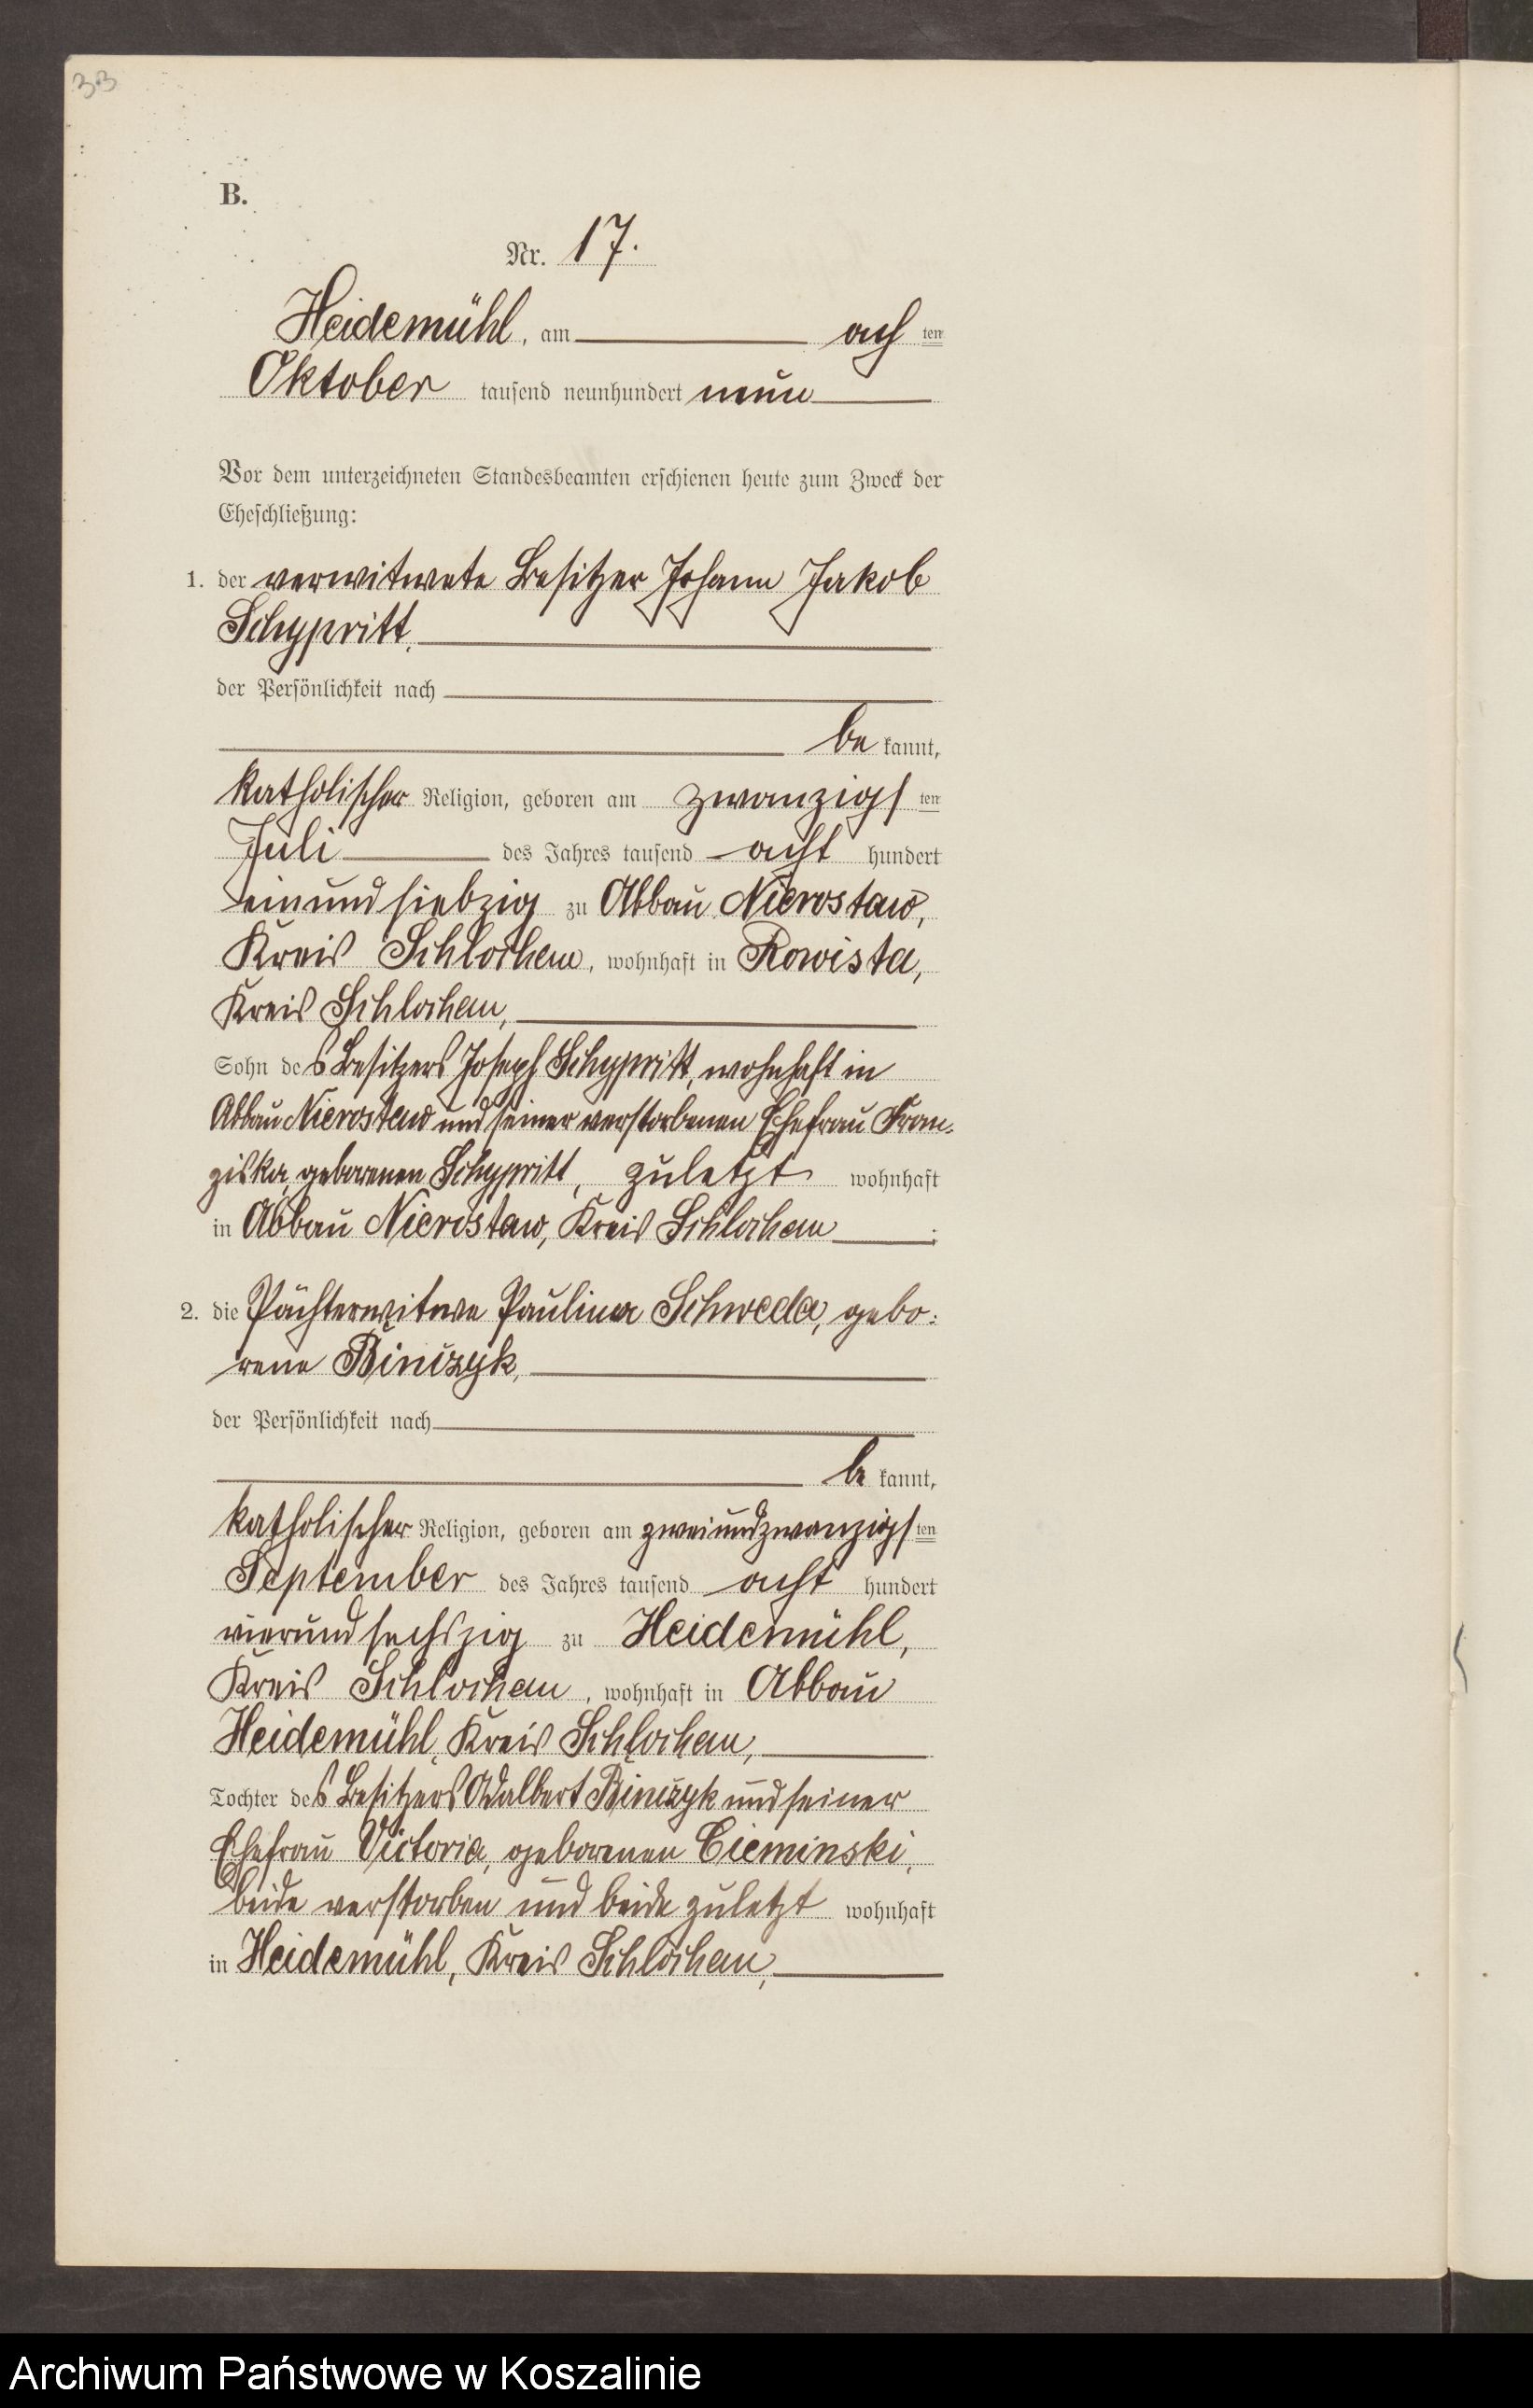 33
B.
Nr. 17.
Heidemühl, am ach ten
Oktober tausend neunhundert neun
Vor dem unterzeichneten Standesbeamten erschienen heute zum Zweck der
Eheschließung:
1. der verwitwete Besitzer Johann Jakob
Schypritt,
der Persönlichkeit nach
be kannt,
katholischer Religion, geboren am zwanzigs ten
Juli des Jahres tausend acht hundert
einundsiebzig zu Abbau Nierostaw,
Kreis Schlochau, wohnhaft in Rowista,
Kreis Schlochau,
Sohn des Besitzers Joseph Schypritt, wohnhaft in
Abbau Nierostaw und seiner verstorbenen Ehefrau Fran-
ziska, geborenen Schypritt, zuletzt wohnhaft
in Abbau Nierostaw, Kreis Schlochau ;
2. die Pächterwitwe Paulina Schweda, gebo-
rene Binczyk,
der Persönlichkeit nach
be kannt,
katholischer Religion, geboren am zweiundzwanzigs ten
September des Jahres tausend acht hundert
vierundsechszig zu Heidemühl,
Kreis Schlochau, wohnhaft in Abbau
Heidemühl, Kreis Schlochau,
Tochter des Besitzers Adalbert Binczyk und seiner
Ehefrau Victoria, geborenen Cieminski,
beide verstorben und beide zuletzt wohnhaft
in Heidemühl, Kreis Schlochau,
Archiwum Państwowe w Koszalinie